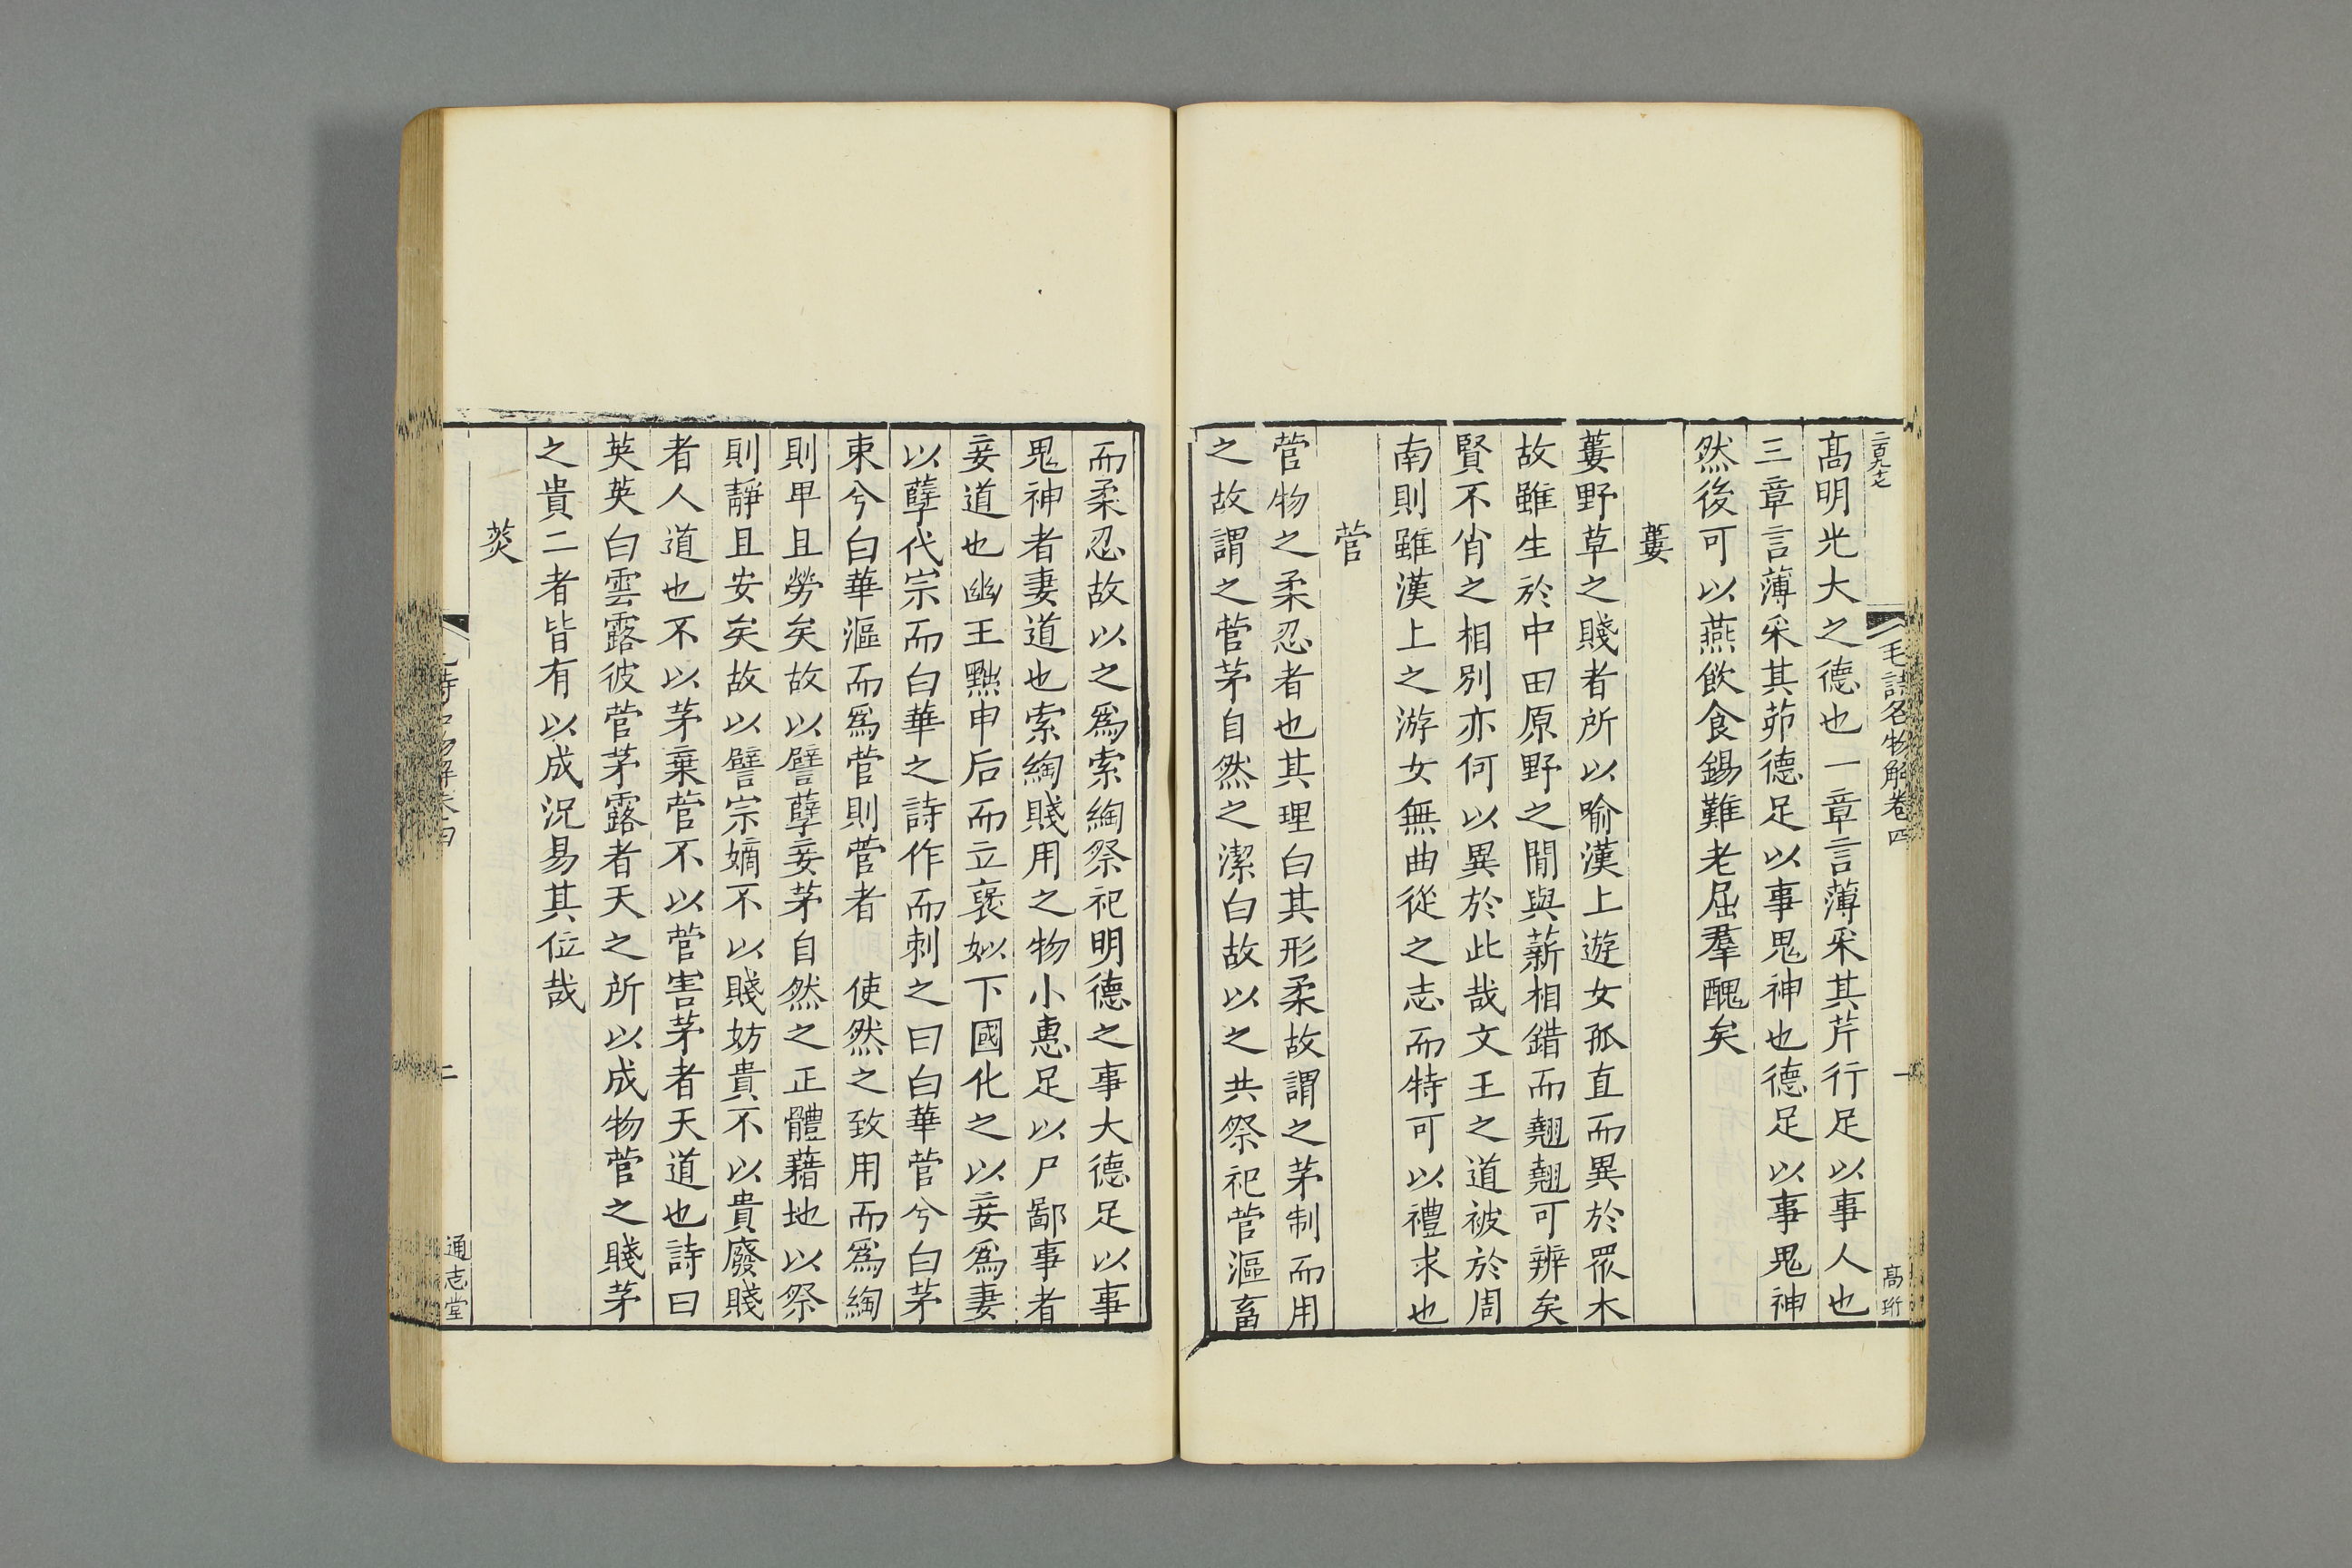 二百九七
毛詩名物解卷四
一
高珩
髙明光大之德也一章言薄采其芹行足以事人也
三章言薄采其茆德足以事鬼神也德足以事鬼神
然後可以燕飲食錫難老屈羣醜矣
蔞
蔞野草之賤者所以喻漢上遊女孤直而異於眾木
故雖生於中田原野之閒與薪相錯而翹翹可辨矣
賢不肖之相別亦何以異於此哉文王之道被於周
南則雖漢上之游女無曲從之志而特可以禮求也
菅
菅物之柔忍者也其理白其形柔故謂之茅制而用
之故謂之菅茅自然之潔白故以之共祭祀菅漚畜
而柔忍故以之爲索綯祭祀明德之事大德足以事
鬼神者妻道也索綯賤用之物小惠足以尸鄙事者
妾道也幽王黜申后而立褒姒下國化之以妾爲妻
以孽代宗而白華之詩作而刺之曰白華菅兮白茅
束兮白華漚而爲菅則菅者 使然之致用而爲綯
則卑且勞矣故以譬孽妾茅自然之正體藉地以祭
則靜且安矣故以譬宗嫡不以賤妨貴不以貴廢賤
者人道也不以茅棄菅不以菅害茅者天道也詩曰
英英白雲露彼菅茅露者天之所以成物菅之賤茅
之貴二者皆有以成況易其位哉
菼
二
通志堂